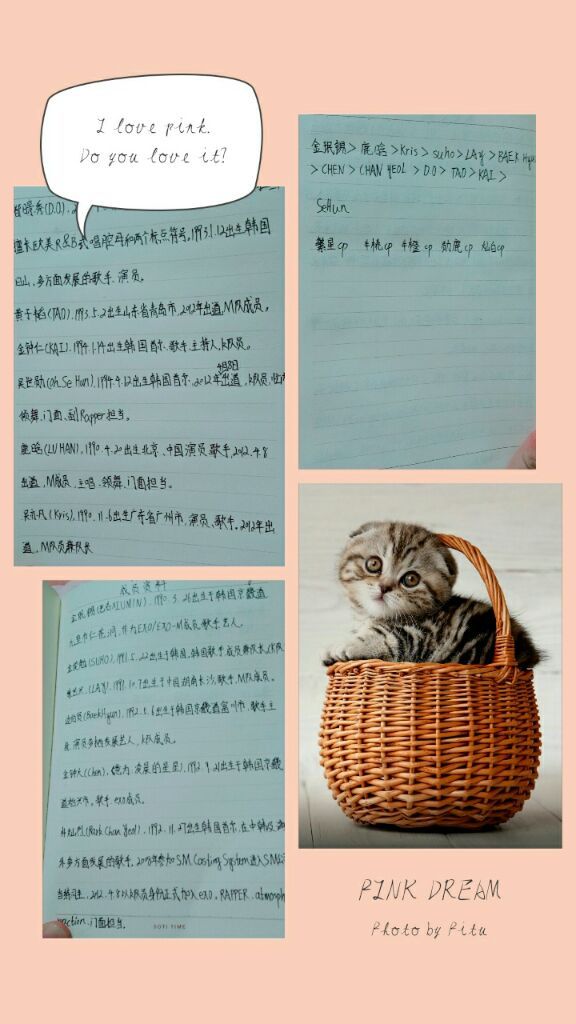 I love pink.
Do you love it?
(D.O).2
擅长欧美R&B式唱腔母和两个标点符号。1993.1.12出生韩国
日山,多方面发展的歌手、演员。
黄子韬(TAO).1993.5.2出生山东省青岛市.2012年出道,M队成员。
金钟仁(KAI).1994.1.14出生韩国首尔.歌手.主持人,k队员。
4月8日
吴世勋(Oh Se Hun).1994.4.12出生韩国首尔.2012年出道,k队员,
领舞、门面、副Rapper担当。
鹿晗(LUHAN).1990.4.20出生北京、中国演员,歌手,2012.4.8
出道,M成员、主唱、领舞、门面担当。
吴亦凡(Kris),1990.11.6出生广东省广州市,演员、歌手。2012年出
道,M队员兼队长
金珉锡>鹿晗>Kris>suho>LAY>BAEK Hyu
>CHEN>CHANYEOL>D.O>TAO>KAI>
SeHun
繁星cp 牛桃cp 牛橙cp 勋鹿cp 灿白cp
成员资料
金珉锡(XIUMIN).1990.3.26出生于韩国京畿道
九里市仁苍洞,作为EXO/EXO-M成员,歌手艺人。
金俊勉(SUHO).1991.5.22出生于韩国,韩国歌手,成员兼队长,k队
张艺兴(LAY).1991.10.7出生于中国湖南长沙,歌手,M队成员。
边伯贤(BaekHyun),1992.5.6出生于韩国京畿道富川市,歌手主
演员多栖发展艺人,k队成员。
金钟大(Chen),(意为:凌晨的星星),1992.9.21出生于韩国京畿
道始兴市,歌手,exo成员。
朴灿烈(Park Chan Yeol),1992.11.27出生韩国首尔,在中韩
乐多方面发展的歌手,2008年参加SM Casting System进入SM公
当练习生,2012.4.8以k队员身份正式加入exo,RAPPER,atmosph
action,门面担当。
SOFI TIME
PINK DREAM
Photo by Pitu